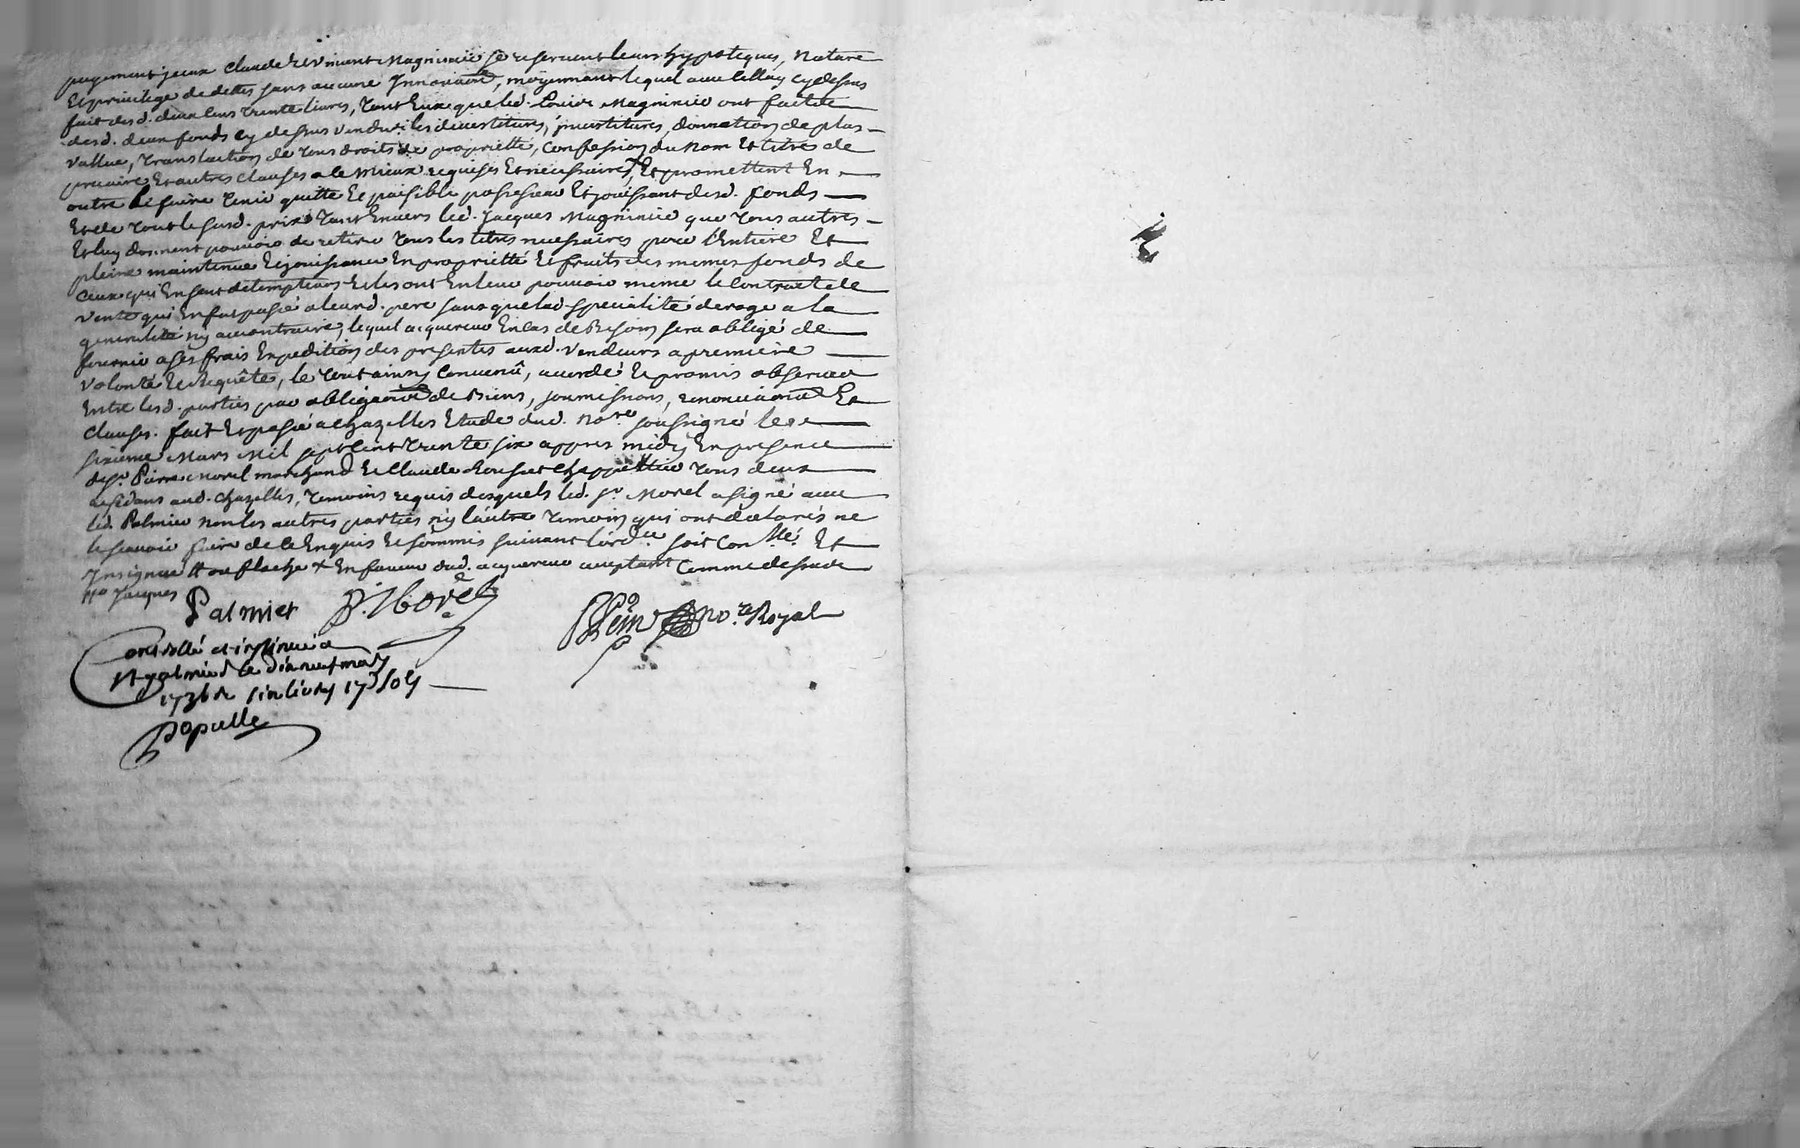 payement jceux Claude et vincent Magninie se reservent leurs hypoteques, Nature
Et privilege de dettes sans aucune Innovaon, moyennant lequel avec celluy cy dessus
fait desd. deux Cens trente livres, tant Eux que led. Louis Magninie ont fait de
desd. deux fonds cy dessus vendu les devestitures, jnvestitures, donnation de plus
vallue, translation de tous droits de proprietté, Confession du Nom Et titres de
precaire Et autres clauses a le mieux requises Et necessaires, Et promettent En
outre le faire tenir quitte Et paisible possesseur Et jouissant desd. fonds
Et de tout le susd. prix tant Envers led. Jacques Magninie que tous autres
Et luy donnent pouvoir de retirer tous les titres necessaires pour l'Entiere Et
pleine maintenue Et jouissance En proprietté Et fruits des memes fonds de
Ceux qui En sont detempteurs Et les ont En leur pouvoir meme le Contract de
vente qui En fut passé a leurd. pere sans que lad. specialité deroge a la
generalité ny au contraire, lequel acquereur En cas de Besoin sera obligé de
fournir a ses frais Expedition des presentes auxd. vendeurs a premiere
volonté Et Requête, le tout ainsy Convenû, accordé Et promis observer
Entre lesd. parties par obligaon de Biens, soumissions, renonciaons Et
Clauses. fait Et passé a Chazelles Etude dud. Nore. soussigné le
sixieme Mars Mil sept Cent trente six appres midy En presence
de Sr. Pierre Morel marchand Et Claude Chappellier tous deux
residans aud. Chazelles, temoins requis desquels led. Sr. Morel a signé avec
led. Palmier non les autres parties ny l'autre temoin qui ont declarés ne
le scavoir faire de ce Enquis Et sommis suivant l'ord.ce soit Con.llé Et
Insignué # ou flache + En faveur dud. acquereur acceptant Comme dessus
# Jacques
Palmier P. Morel No.re Royal
Controllé et insinué a
St galmier le dix neuf mars
1736 R six livres 17 sols
Populle